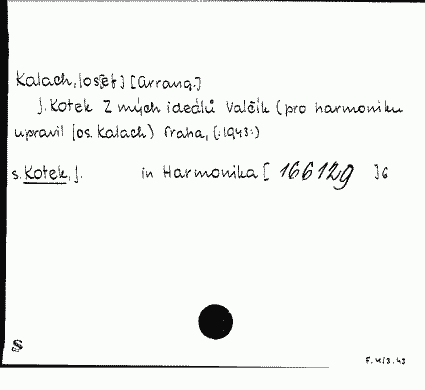 Kalach, Jos[ef] [Arrang.]
J. Kotek Z mých ideálů Valčík (pro harmoniku
upravil Jos. Kalach) Praha, (:1943:)
s. Kotek, J. in Harmonika [ 166129 ] 6
S